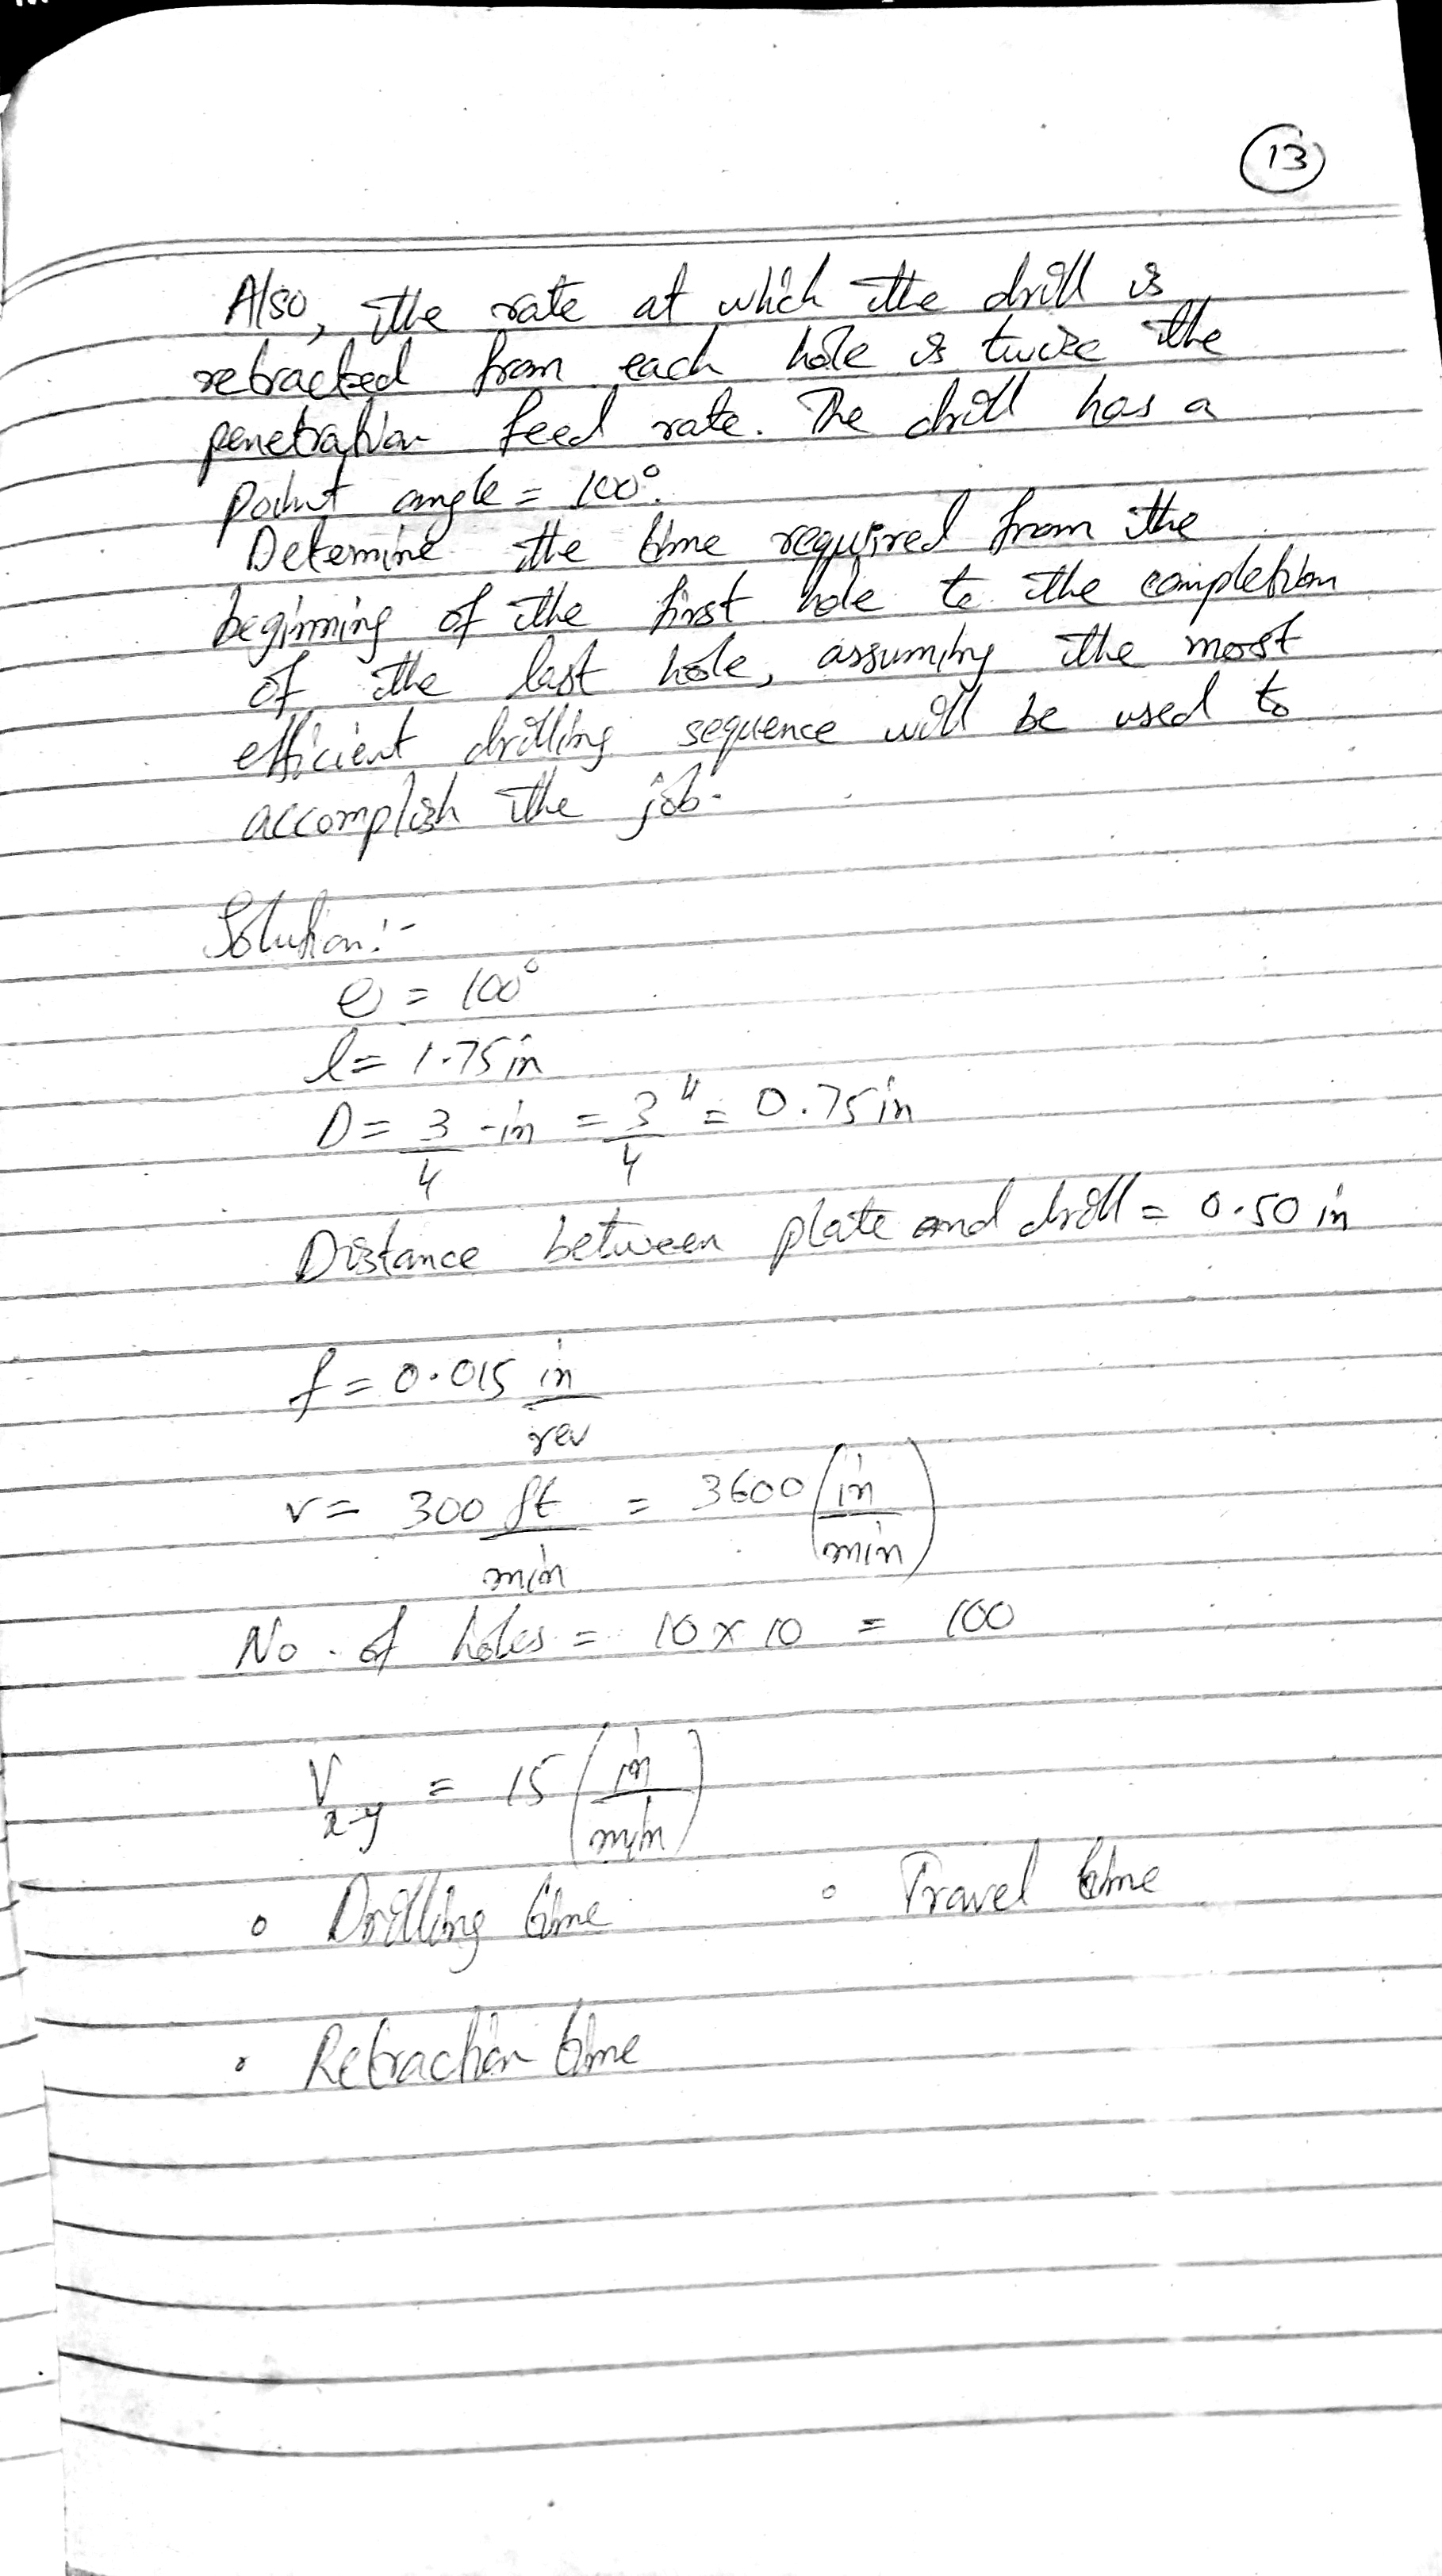 13
Also, the rate at which the drill is
retracted from each hole is twice the
penetration feed rate. The drill has a
point angle = 100°.
Determine the time required from the
beginning of the first hole to the completion
of the last hole, assuming the most
efficient drilling sequence will be used to
accomplish the job.
Solution:-
θ = 100°
l = 1.75 in
D = 3/4 -in = 3/4" = 0.75 in
Distance between plate and drill = 0.50 in
f = 0.015 in/rev
v = 300 ft/min = 3600 (in/min)
No. of holes = 10 x 10 = 100
V x-y = 15 (in/min)
• Drilling time • Travel time
• Retraction time